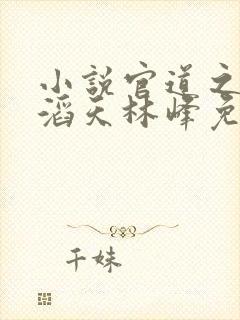 小说官道之
滔天林峰免
千妹